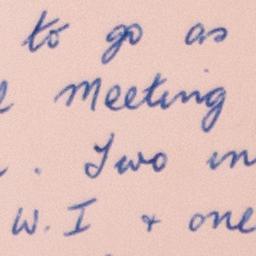 to go as
Meeting
. Two in
W. I + one